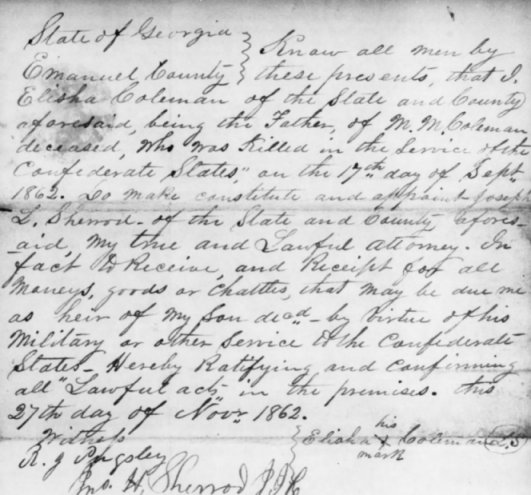 State of Georgia } Know all men by
Emanuel County } these presents, that I.
Elisha Coleman of the State and County
aforesaid, being the Father, of M. M. Coleman
deceased, who was Killed in the Service of the
Confederate States," on the 17th day of Sept
1862. Do make constitute and appoint Joseph
L. Sherrod - of the State and County afores-
-aid, My true and Lawful attorney. In
fact to Receive, and Receipt for all
Moneys, goods or Chattles, that may be due me
as heir of My Son decd - by virtue of his
Military or other Service to the Confederate
States - Hereby Ratifying and confirming
all "Lawful acts in the premises. this
27th day of Novr 1862.
Witness
Elisha his X mark Coleman L.S
R. J Pugsley
Jno. H. Sherrod J.I.C